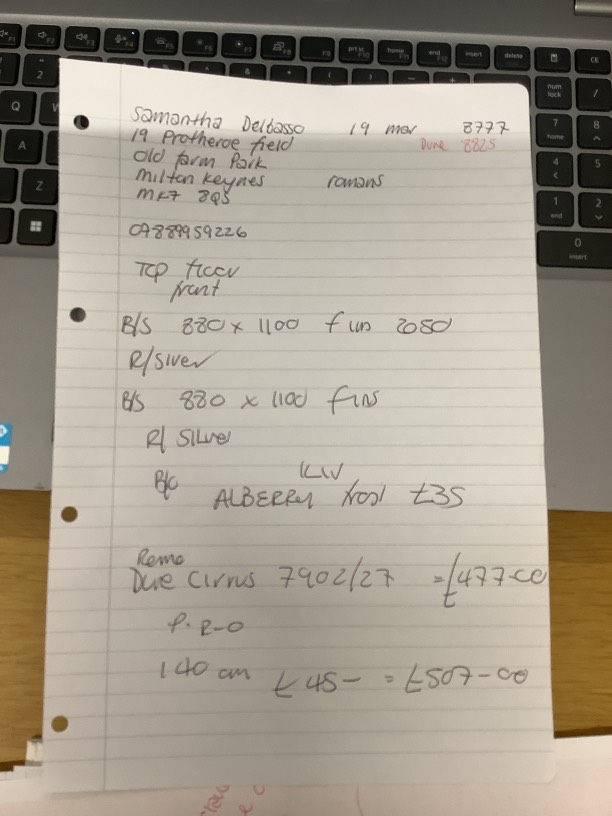 Samantha Delbasso 19 mar 8777
19 Protheroe field Dune 8825
Old farm Park
Milton Keynes romans
MK7
07889959226
Top floor
front
B/S 880 x 1100 f 2050
R/Silver
B/S 880 x 1100 fins
R/ Silver
B/C
ALBERRY frost £35
Remo
Dune Cirrus 7902/27 = £477-00
P. R-O
140 cm £45- = £507-00